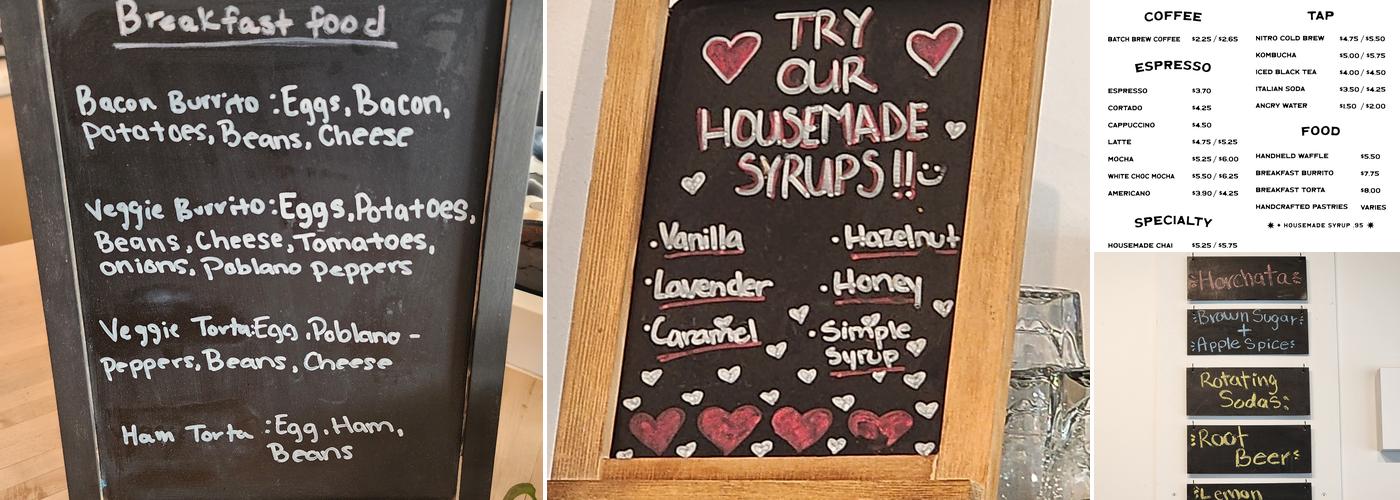 Breakfast food
Bacon Burrito : Eggs, Bacon,
Potatoes, Beans, Cheese
Veggie Burrito: Eggs, Potatoes,
Beans, Cheese, Tomatoes,
onions, Poblano Peppers
Veggie Torta: Egg, Poblano -
Peppers, Beans, Cheese
Ham Torta : Egg, Ham,
Beans
TRY
OUR
HOUSEMADE
SYRUPS!!
· Vanilla
· Lavender
· Caramel
· Hazelnut
· Honey
· Simple
Syrup
COFFEE
BATCH BREW COFFEE $2.25 / $2.65
ESPRESSO
ESPRESSO $3.70
CORTADO $4.25
CAPPUCCINO $4.50
LATTE $4.75 / $5.25
MOCHA $5.25 / $6.00
WHITE CHOC MOCHA $5.50 / $6.25
AMERICANO $3.90 / $4.25
SPECIALTY
HOUSEMADE CHAI $5.25 / $5.75
TAP
NITRO COLD BREW $4.75 / $5.50
KOMBUCHA $5.00 / $5.75
ICED BLACK TEA $4.00 / $4.50
ITALIAN SODA $3.50 / $4.25
ANGRY WATER $1.50 / $2.00
FOOD
HANDHELD WAFFLE $5.50
BREAKFAST BURRITO $7.75
BREAKFAST TORTA $8.00
HANDCRAFTED PASTRIES VARIES
+ HOUSEMADE SYRUP .95
Horchata
Brown Sugar
+
Apple Spice
Rotating
Sodas
Root
Beer
Lemon